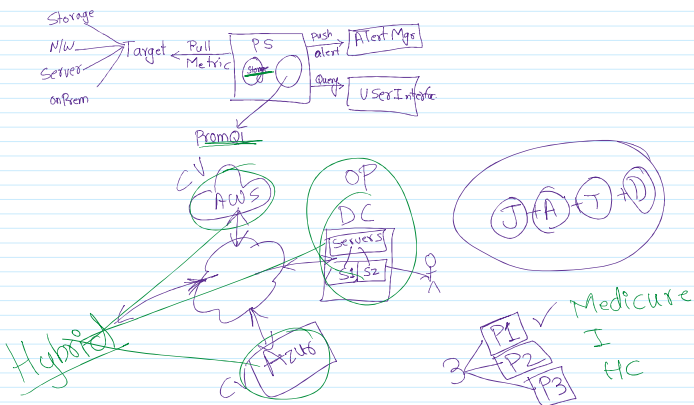 Storage
N/W
Server
onPrem
Target
Pull
Metric
PS
Storage
Push
alert
Alert Mgr
Query
USerInterface
PromQl
CV
AWS
OP
DC
Servers
S1 S2
J + A + T + D
Hybrid
Azur
CV
3
P1
P2
P3
Medicure
I
HC